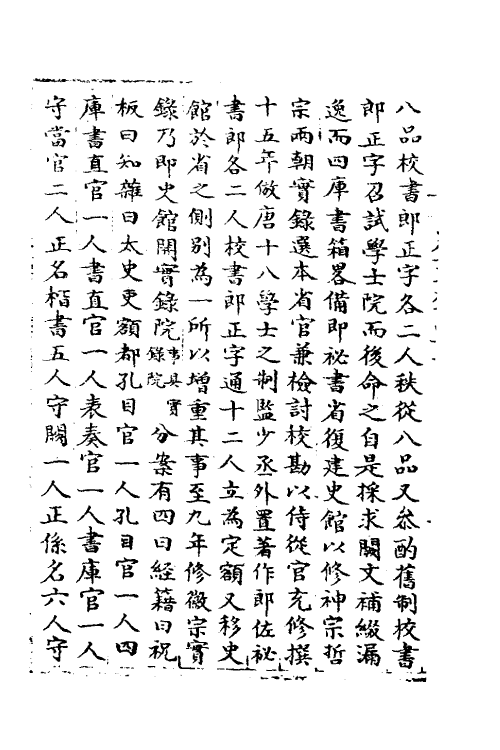 八品校書郎正字各二人秩從八品又叅酌舊制校書
郎正字召試學士院而後命之自是採求闕文補綴漏
逸而四庫書箱畧備即祕書省復建史館以修神宗哲
宗兩朝實錄選本省官兼檢討校勘以侍從官充修撰
十五年倣唐十八學士之制監少丞外置著作郎佐祕
書郎各二人校書郎正字通十二人立為定額又移史
館於省之側別為一所以增重其事至九年修徽宗實
錄乃即史館開實錄院事具實錄院分案有四曰經籍曰祝
板曰知雜曰太史吏額都孔目官一人孔目官一人四
庫書直官一人書直官一人表奏官一人書庫官一人
守當官二人正名楷書五人守闕一人正係名六人守